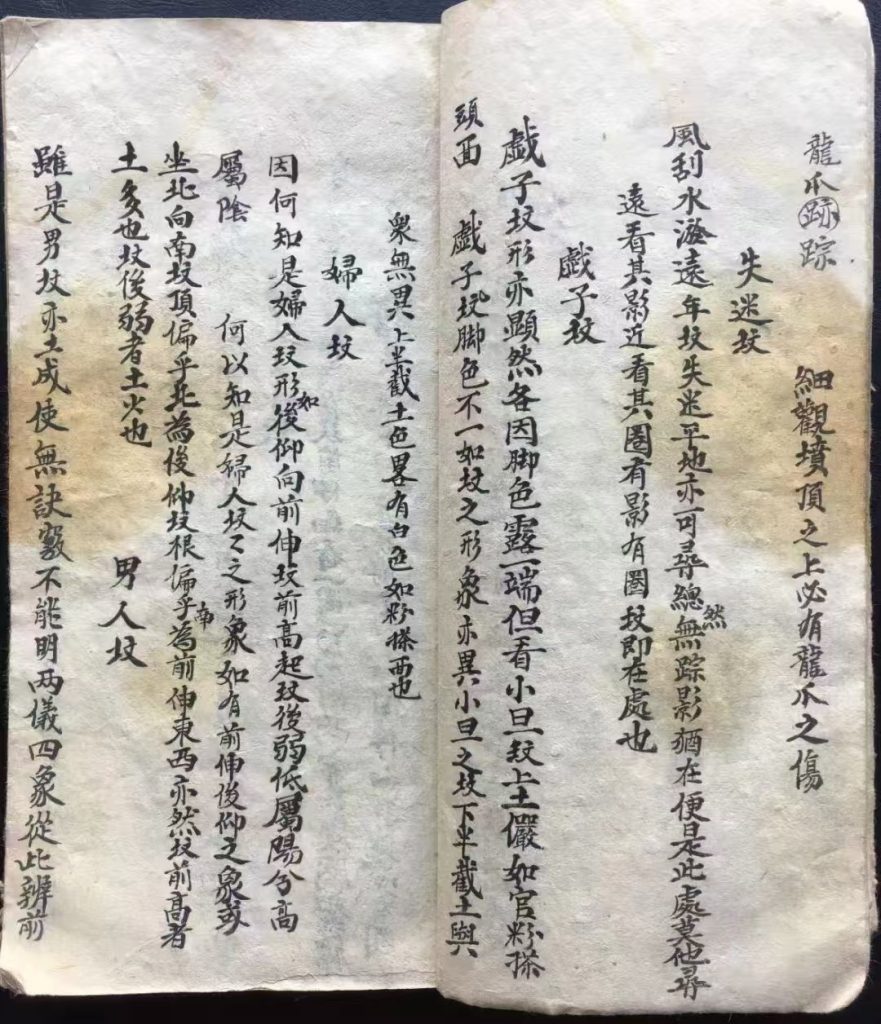 龍爪跡踪　細觀墳頂之上必有龍爪之傷
失迷坟
風刮水渰遠年坟失迷平地亦可尋總然無踪影猶在便是此處莫他尋
遠看其影近看其圈有影有圈坟即在處也
戯子坟
戯子坟形亦顕然各因脚色露一端但看小旦坟上土儼如官粉搽
頭面　戯子坟脚色不一如坟之形象亦異小旦之坟下半截土與
衆無異上半截土色畧有白色如粉搽面也
婦人坟
因何知是婦人坟形如後仰向前伸坟前高起坟後弱低屬陽分高
屬陰　何以知是婦人坟〻之形象如有前伸後仰之象或
坐北向南坟頂偏乎北為後仰坟根偏乎南為前伸東西亦然坟前高者
土多也坟後弱者土少也
男人坟
雖是男坟亦土成使無訣竅不能明両儀四象從此辨前